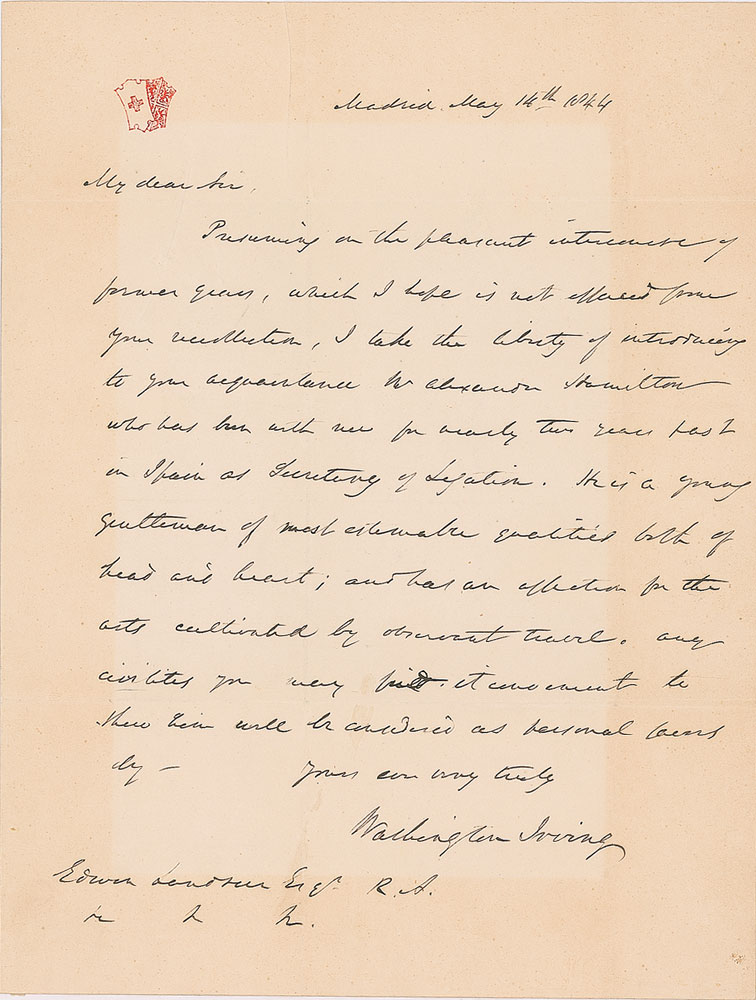 Madrid May 14th 1844
My dear Sir,
Presuming on the pleasant intercourse of
former years, which I hope is not effaced from
your recollection, I take the liberty of introducing
to your acquaintance Mr Alexander Hamilton
who has been with me for nearly two years past
in Spain as Secretary of Legation. He is a young
gentleman of most estimable qualities both of
head and heart; and has an affection for the
arts cultivated by observant travel. Any
civilities you may find it convenient to
shew him will be considered as personal
by —
Yours ever very truly
Washington Irving
Edwin Landseer Esqr R. A.